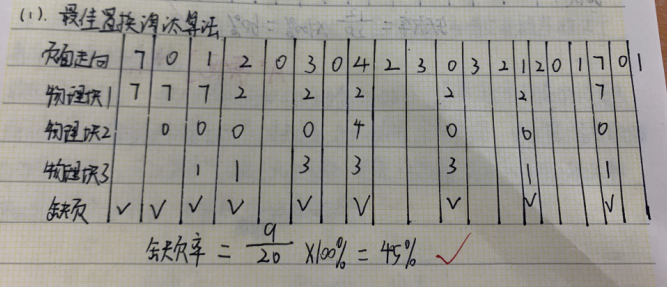 (1). 最佳置换淘汰算法
页面走向 7 0 1 2 0 3 0 4 2 3 0 3 2 1 2 0 1 7 0 1
物理块1 7 7 7 2 2 2 2 2 7
物理块2 0 0 0 0 4 0 0 0
物理块3 1 1 3 3 3 1 1
缺页 √ √ √ √ √ √ √ √ √
缺页率 = 9/20 ×100% = 45% ✓